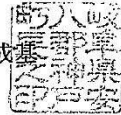 岐阜県安
八郡神戸
町長之印
基